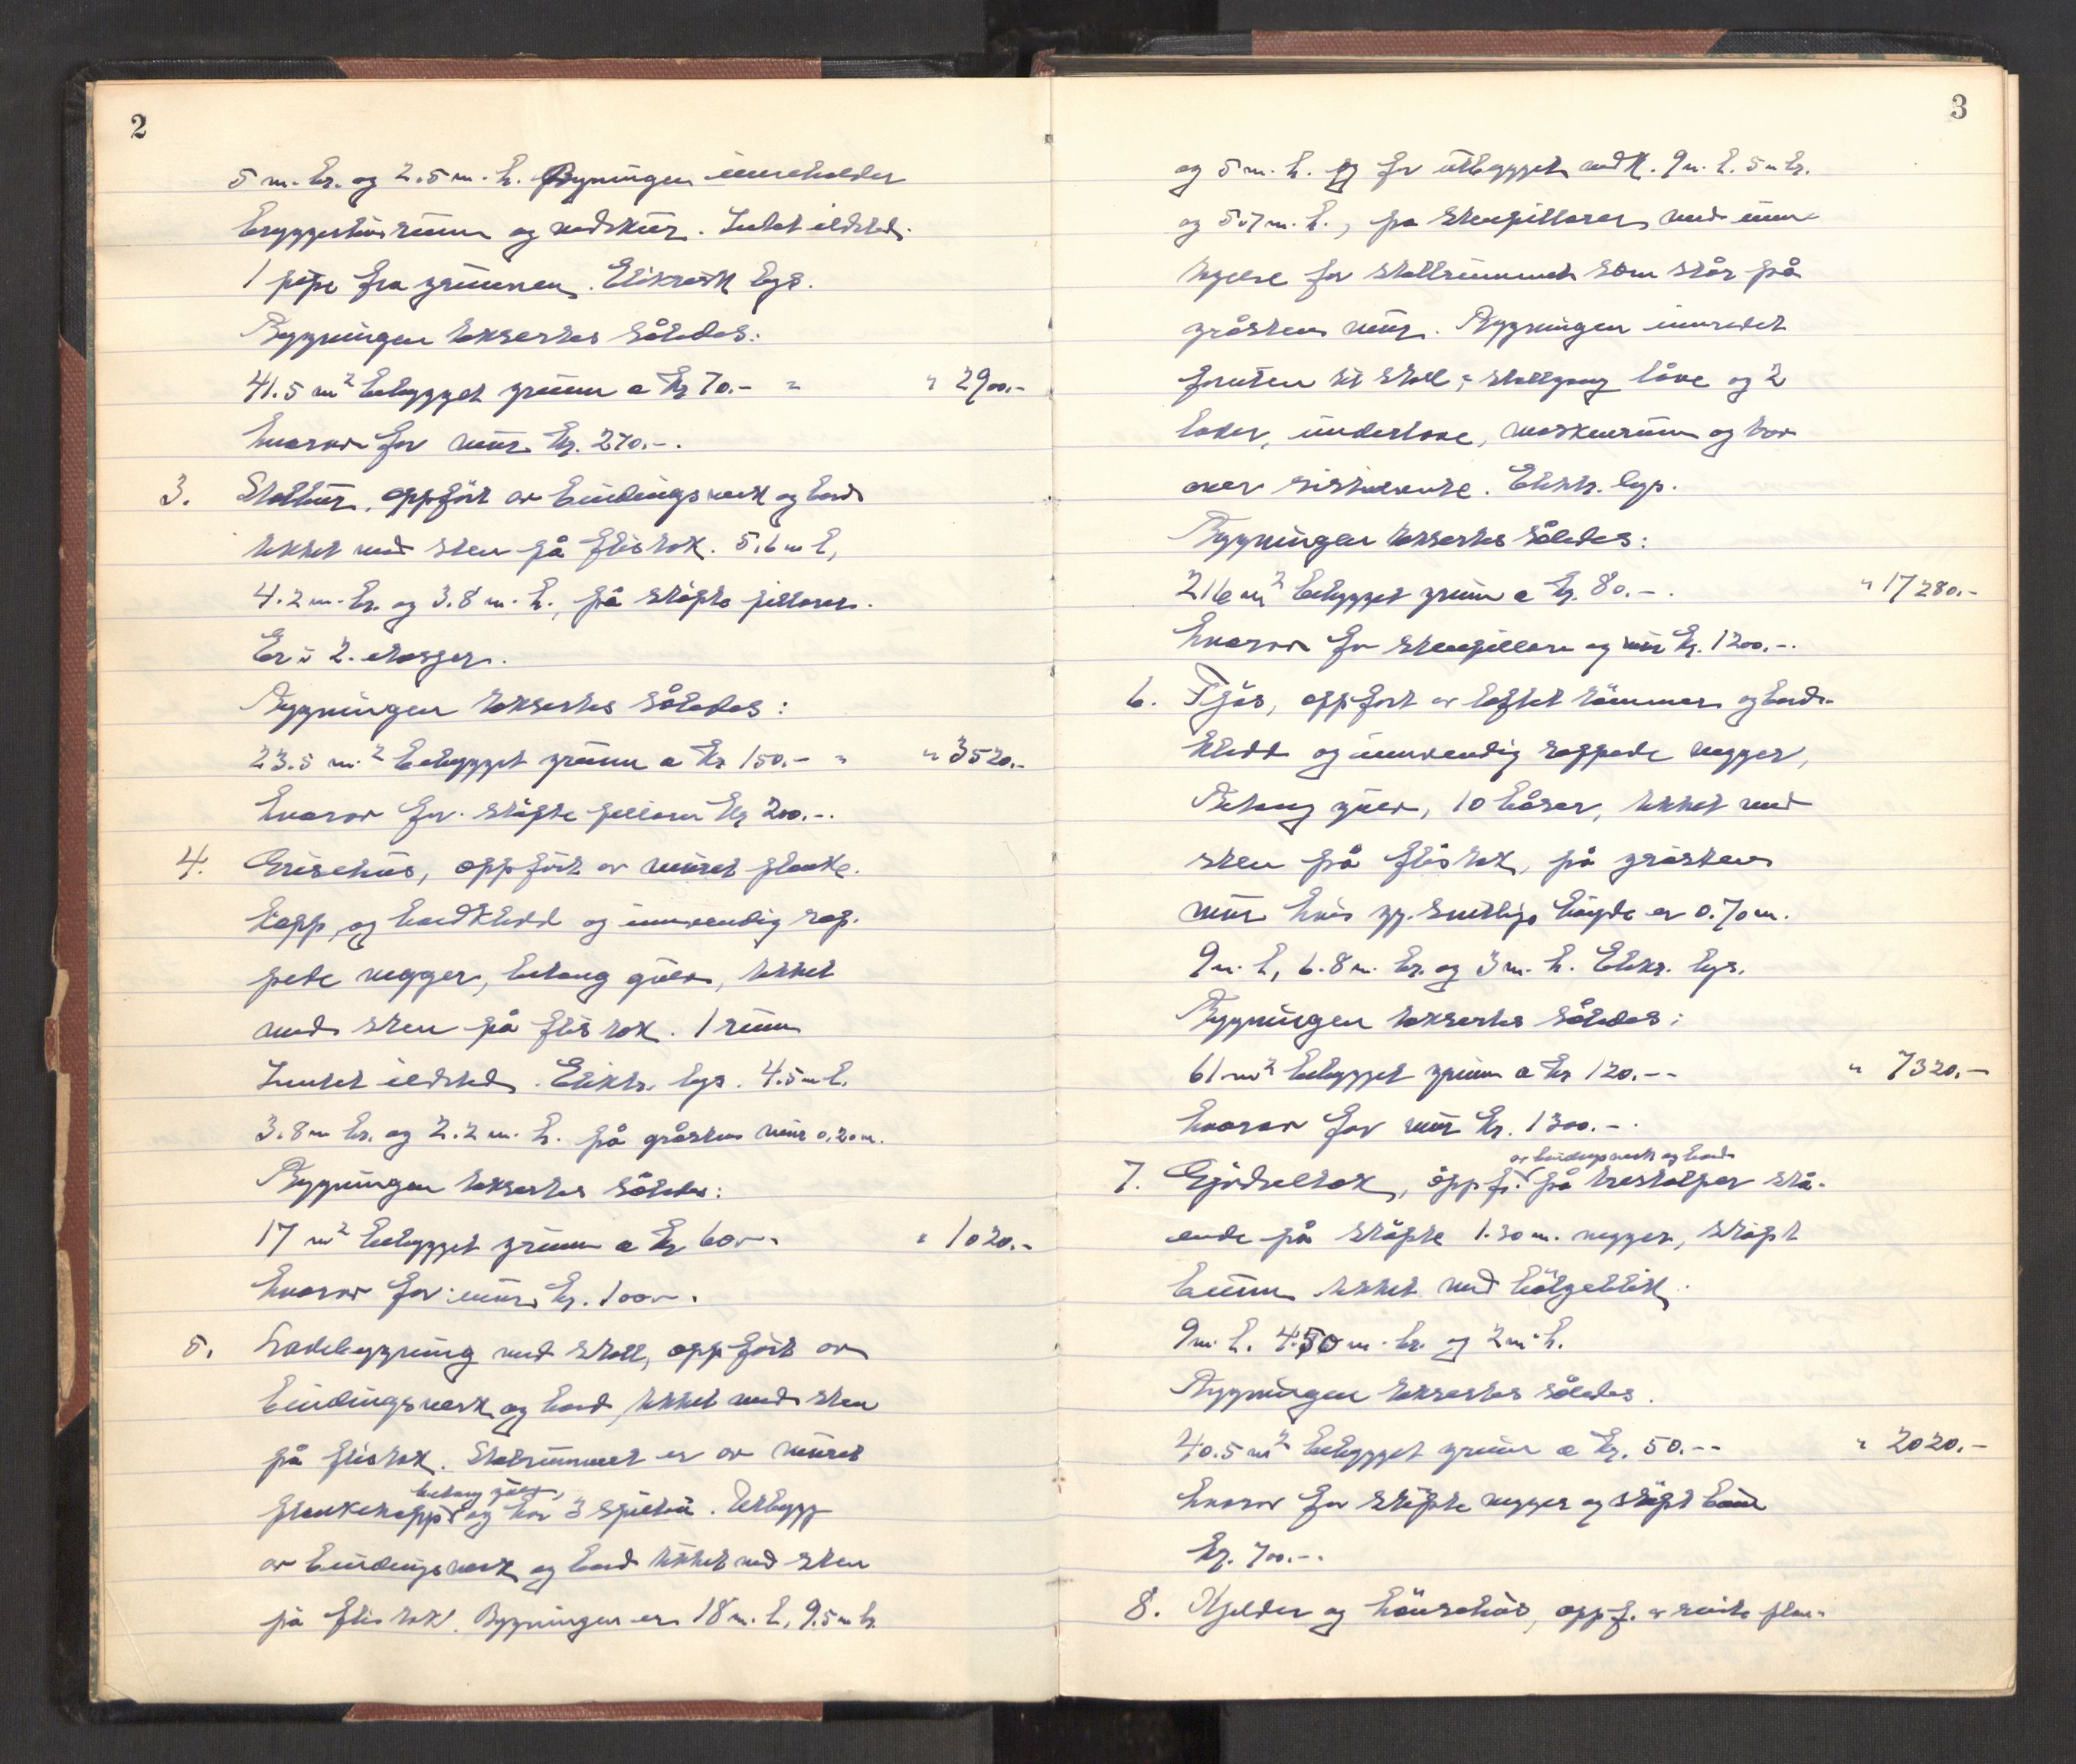 2
5 m. br. og 2.5 m. h. Bygningen inneholder
bryggerhusrum og vedskur. Intet ildsted.
1 pipe fra grunnen. Elektrisk lys.
Bygningen takseres således:
41.5 m² bebygget grunn a kr 70.- " " 2900.-
hvorav for mur kr. 270.-.
3. Stabbur, oppført av bindingsverk og bord
tekket med sten på flistak. 5.6 m l,
4.2 m. br. og 3.8 m. h., på støpte pillarer.
Er i 2. etasjer.
Bygningen takseres således:
23.5 m² bebygget grunn a kr 150.- " " 3520.-
hvorav for støpte pillarer kr 200.-.
4. Grisehus, oppført av muret planke.
kapp, og bordkledd og innvendig rap.
pede vegger, betong gulv, tekket
med sten på flistak. 1 rum
Intet ildsted. Elektr. lys. 4.5 m l.
3.8 m br. og 2.2 m. h. på gråstens mur 0.20 m.
Bygningen takseres således:
17 m² bebygget grunn a kr 60.-. " 1020.-
hvorav for mur kr. 100.-.
5. Ladebygning med stall, oppført av
bindingsverk og bord, tekket med sten
på flistak. Stalrummet er av muret
betong gulv,
plankekapp og har 3 spiltau. Utbygg
av bindingsverk og bord tekket med sten
på flistak. Bygningen er 18 m. l, 9.5 m br.
3
og 5 m. h. og for utbygget vedk. 9 m. l. 5 m br.
og 5.7 m. h., på stenpillarer med unn-
tagelse for stallrummet som står på
gråstens mur. Bygningen innredet
foruten til stall; stallgang låve og 2
lader, underlåve, maskinrum og bro
over sistnevnte. Elektr. lys.
Bygningen takseres således:
216 m² bebygget grunn a kr. 80.-. " 17280.-
hvorav for stenpillarer og mur kr. 1200.-.
6. Fjøs, oppført av laftet tømmer og bord-
kledd og innvendig rappede vegger,
Betong gulv, 10 båser, tekket med
sten på flistak, på gråstens
mur hvis gj.snittlige høyde er 0.70 m.
9 m. l, 6.8 m. br. og 3 m. h. Elektr. lys.
Bygningen takseres således:
61 m² bebygget grunn a kr 120.-- " 7320.-
hvorav for mur kr. 1300.-.
av bindingsverk og bord
7. Gjødseltak, oppf. på trestolper stå-
ende på støpte 1.30 m. vegger, støpt
bunn tekket med bølgeblikk.
9 m. l. 4.50 m. br. og 2 m. h.
Bygningen takseres således.
40.5 m² bebygget grunn a kr. 50.-- " 2020.-
hvorav for støpte vegger og støpt bunn
kr. 700.-.
8. Kjelder og hønsehus, oppf. av plan-